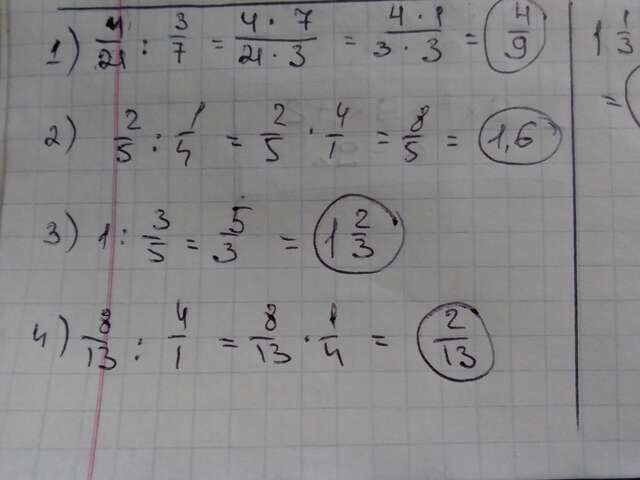 1) 4/21 : 3/7 = 4 · 7/21 · 3 = 4 · 1/3 · 3 = 4/9
2) 2/5 : 1/4 = 2/5 · 4/1 = 8/5 = 1,6
3) 1 : 3/5 = 5/3 = 1 2/3
4) 8/13 : 4/1 = 8/13 · 1/4 = 2/13
1 1/3
=